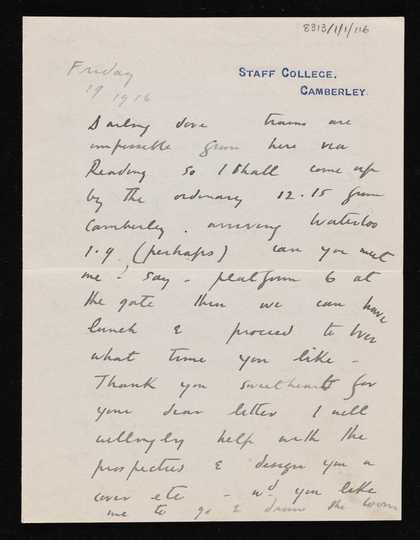 8313/1/1/116
Friday
19 1916
STAFF COLLEGE,
CAMBERLEY.
Darling dove trains are
impossible from here via
Reading so I shall come up
by the ordinary 12.15 from
Camberley. arriving Waterloo
1.9 (perhaps) can you meet
me? Say - platform 6 at
the gate then we can have
lunch & proceed to
what time you like -
Thank you sweetheart for
your dear letter I will
willingly help with the
prospectus & design you a
cover etc - wd you like
me to go & draw the